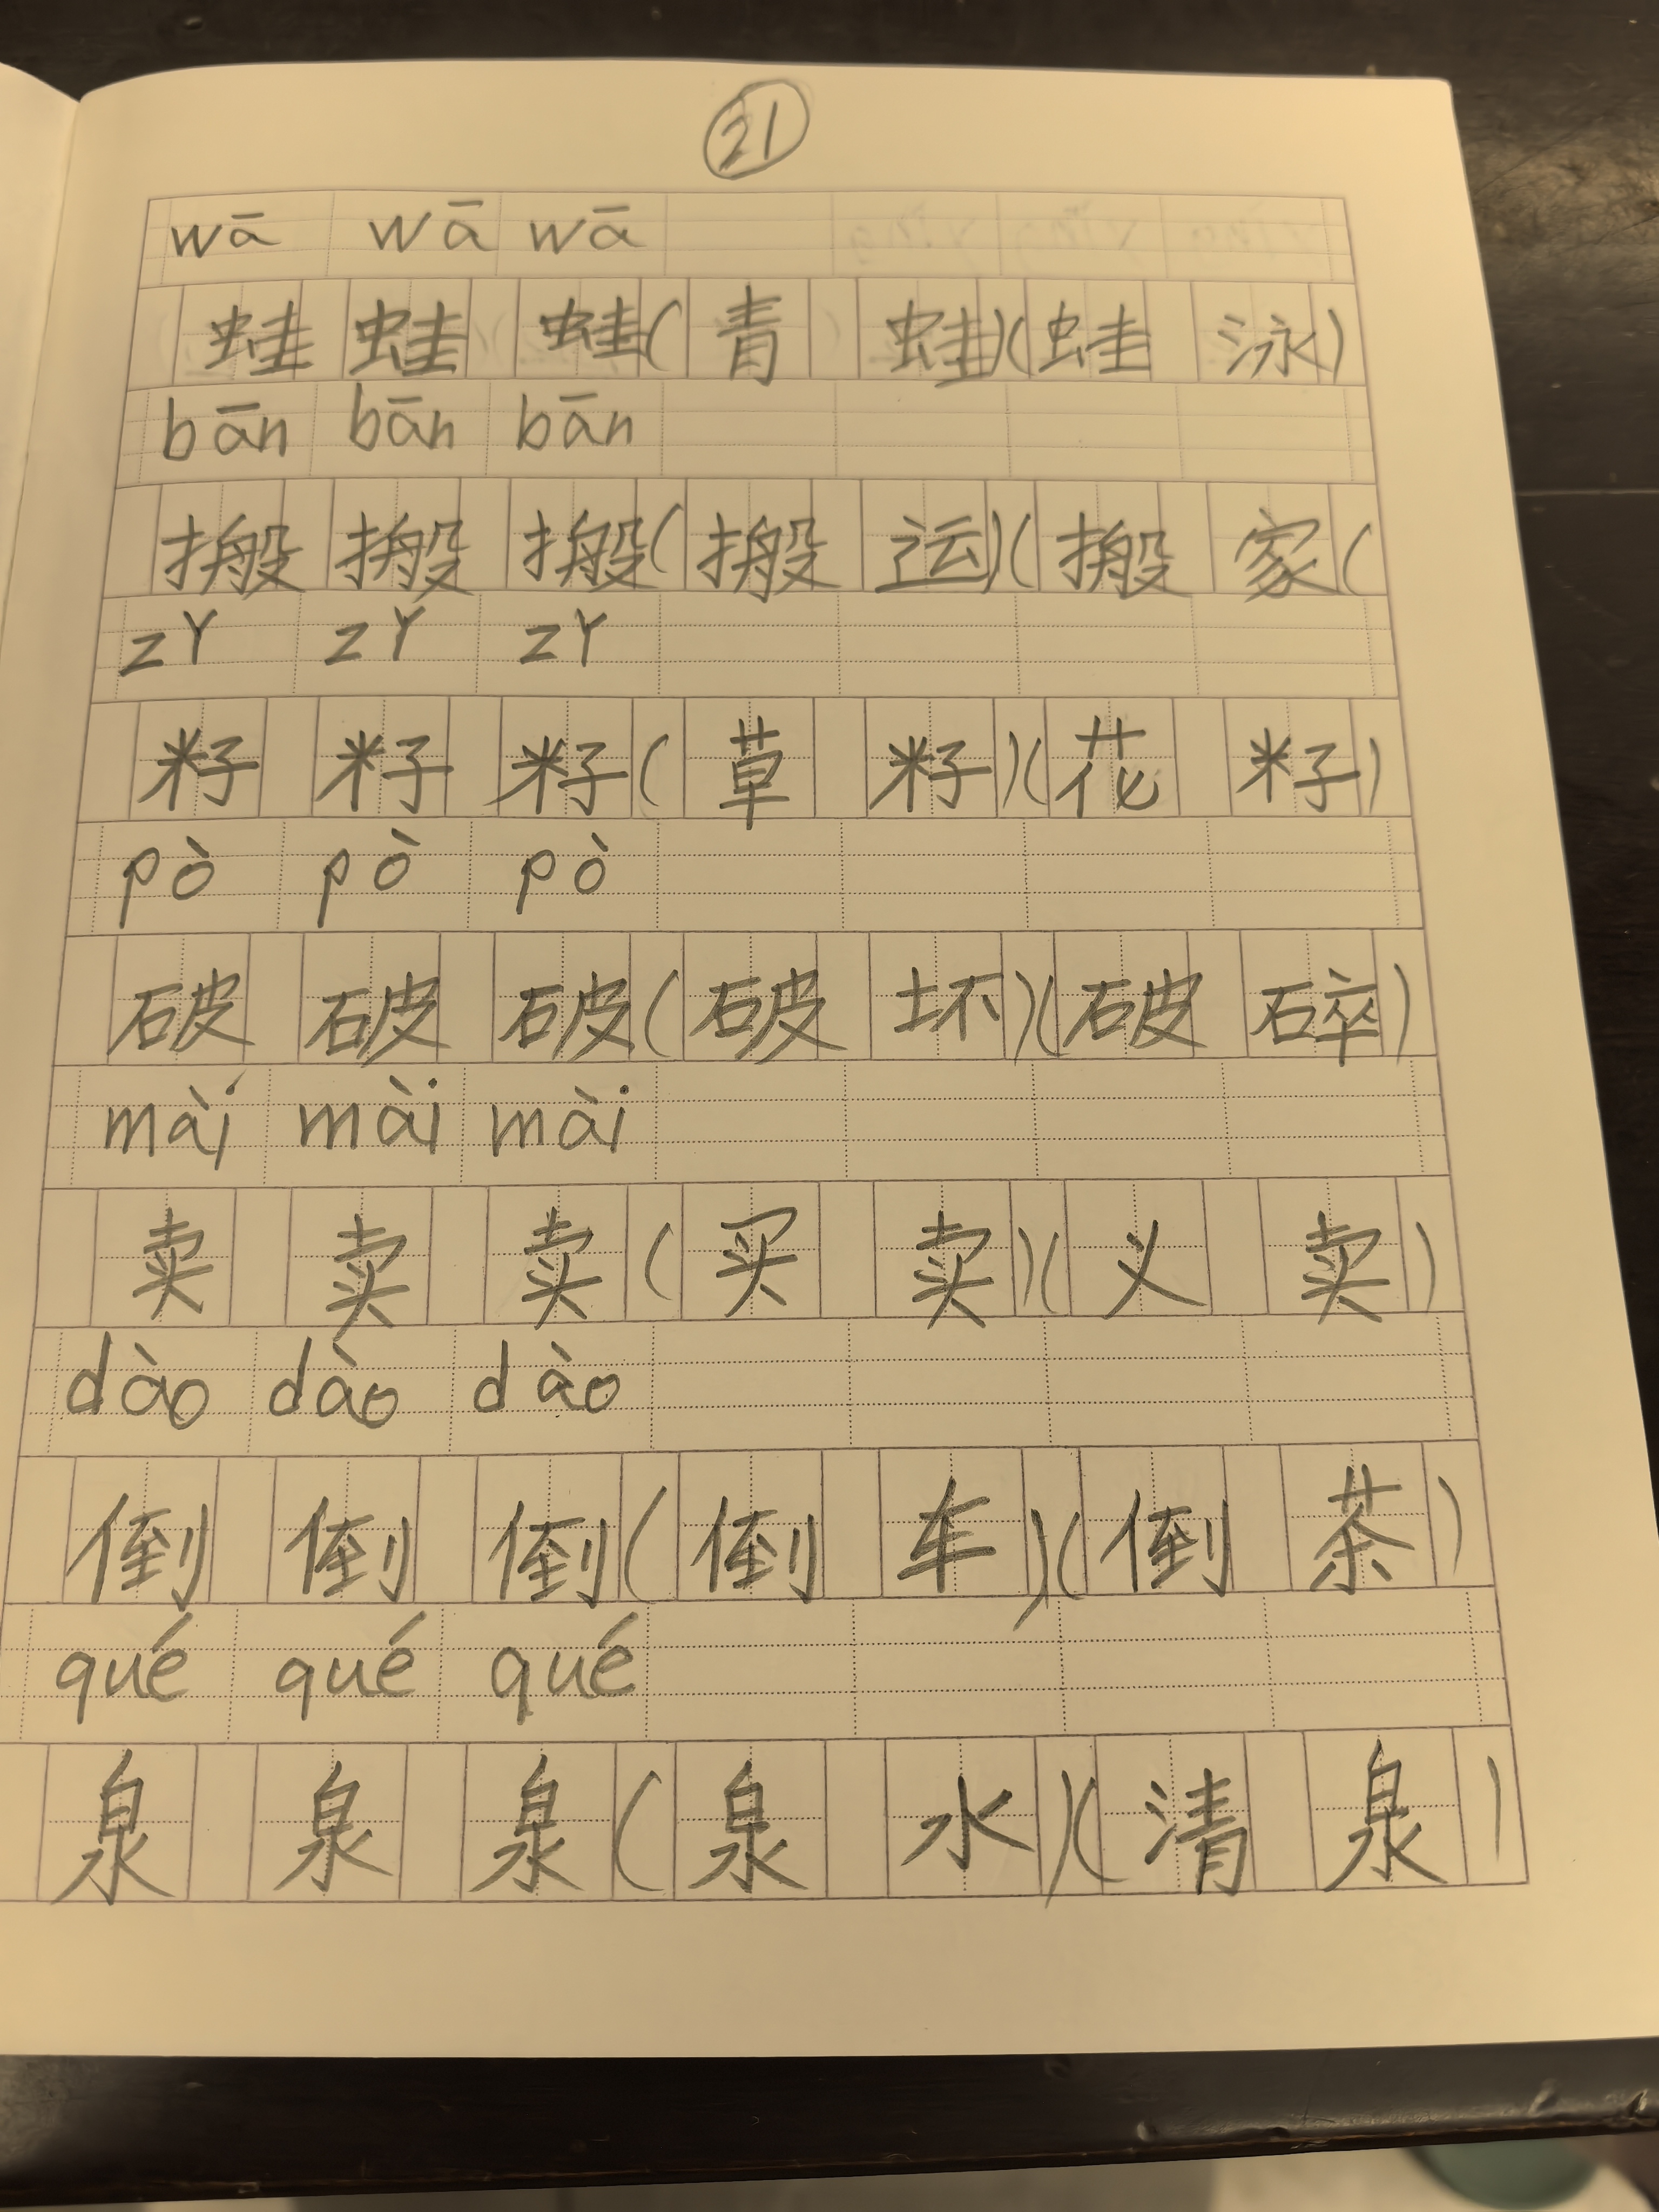 21
wā wā wā
蛙 蛙 蛙(青 蛙)(蛙 泳)
bān bān bān
搬 搬 搬(搬 运)(搬 家(
zǐ zǐ zǐ
籽 籽 籽(草 籽)(花 籽)
pò pò pò
破 破 破(破 坏)(破 碎)
mài mài mài
卖 卖 卖(买 卖)(义 卖)
dào dào dào
倒 倒 倒(倒 车)(倒 茶)
qué qué qué
泉 泉 泉(泉 水)(清 泉)